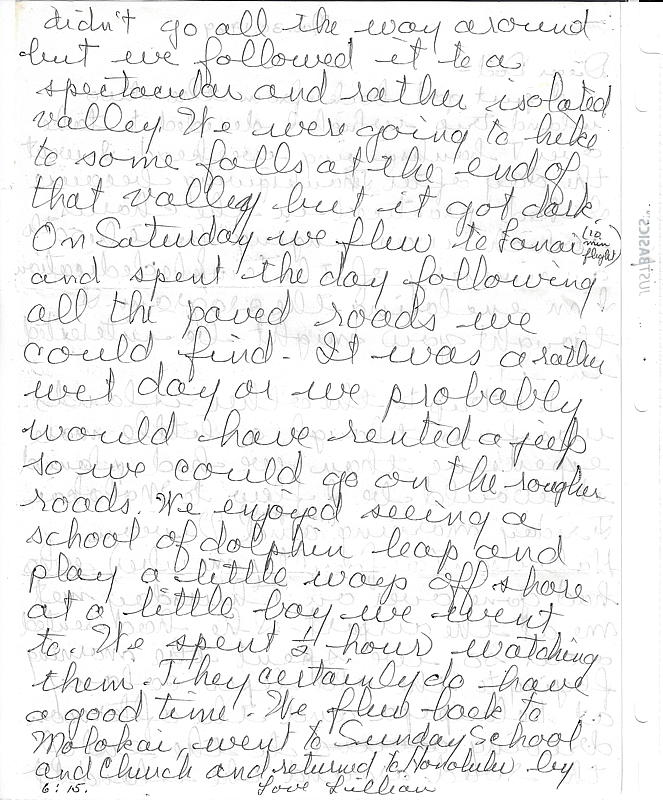 didn't go all the way around
but we followed it to a
spectacular and rather isolated
valley. We were going to hike
to some falls at the end of
that valley but it got dark.
On Saturday we flew to Lanai (10 min flight)
and spent the day following
all the paved roads we
could find. It was a rather
wet day or we probably
would have rented a jeep
so we could go on the rougher
roads. We enjoyed seeing a
school of dolphin leap and
play a little ways off shore
at a little bay we went
to. We spent ½ hour watching
them. They certainly do have
a good time. We flew back to
Molokai, went to Sunday School
and Church and returned to Honolulu by
6:15. Love Lillian
JUSTBASICS